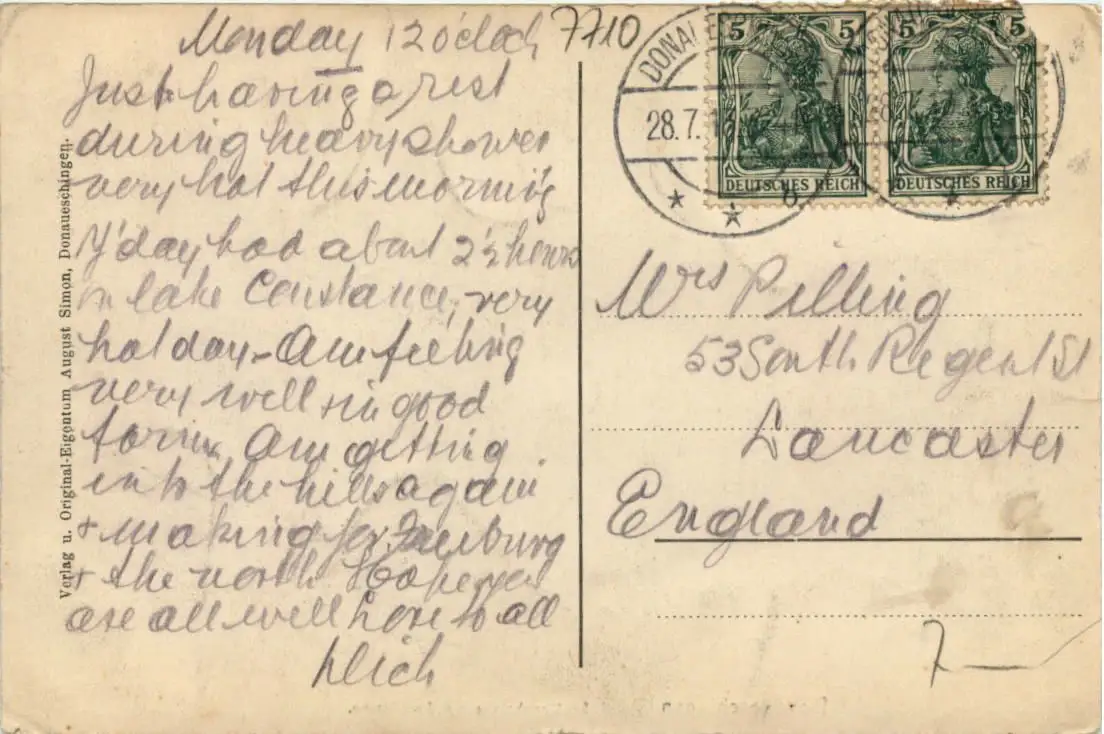 Monday 12 o'clock
7710
Just having a rest
during heavy shower
very hot this morning
Y'day had about 2½ hours
in lake Constance, very
hot day - Am feeling
very well & in good
form. Am getting
into the hills again
+ making for Freiburg
+ the north Hope you
are all well Love to all
Verlag u. Original-Eigentum August Simon, Donaueschingen.
28.7.
5 5
DEUTSCHES REICH
5 5
DEUTSCHES REICH
Mrs Pilling
53 South Regent St
Lancaster
England
7